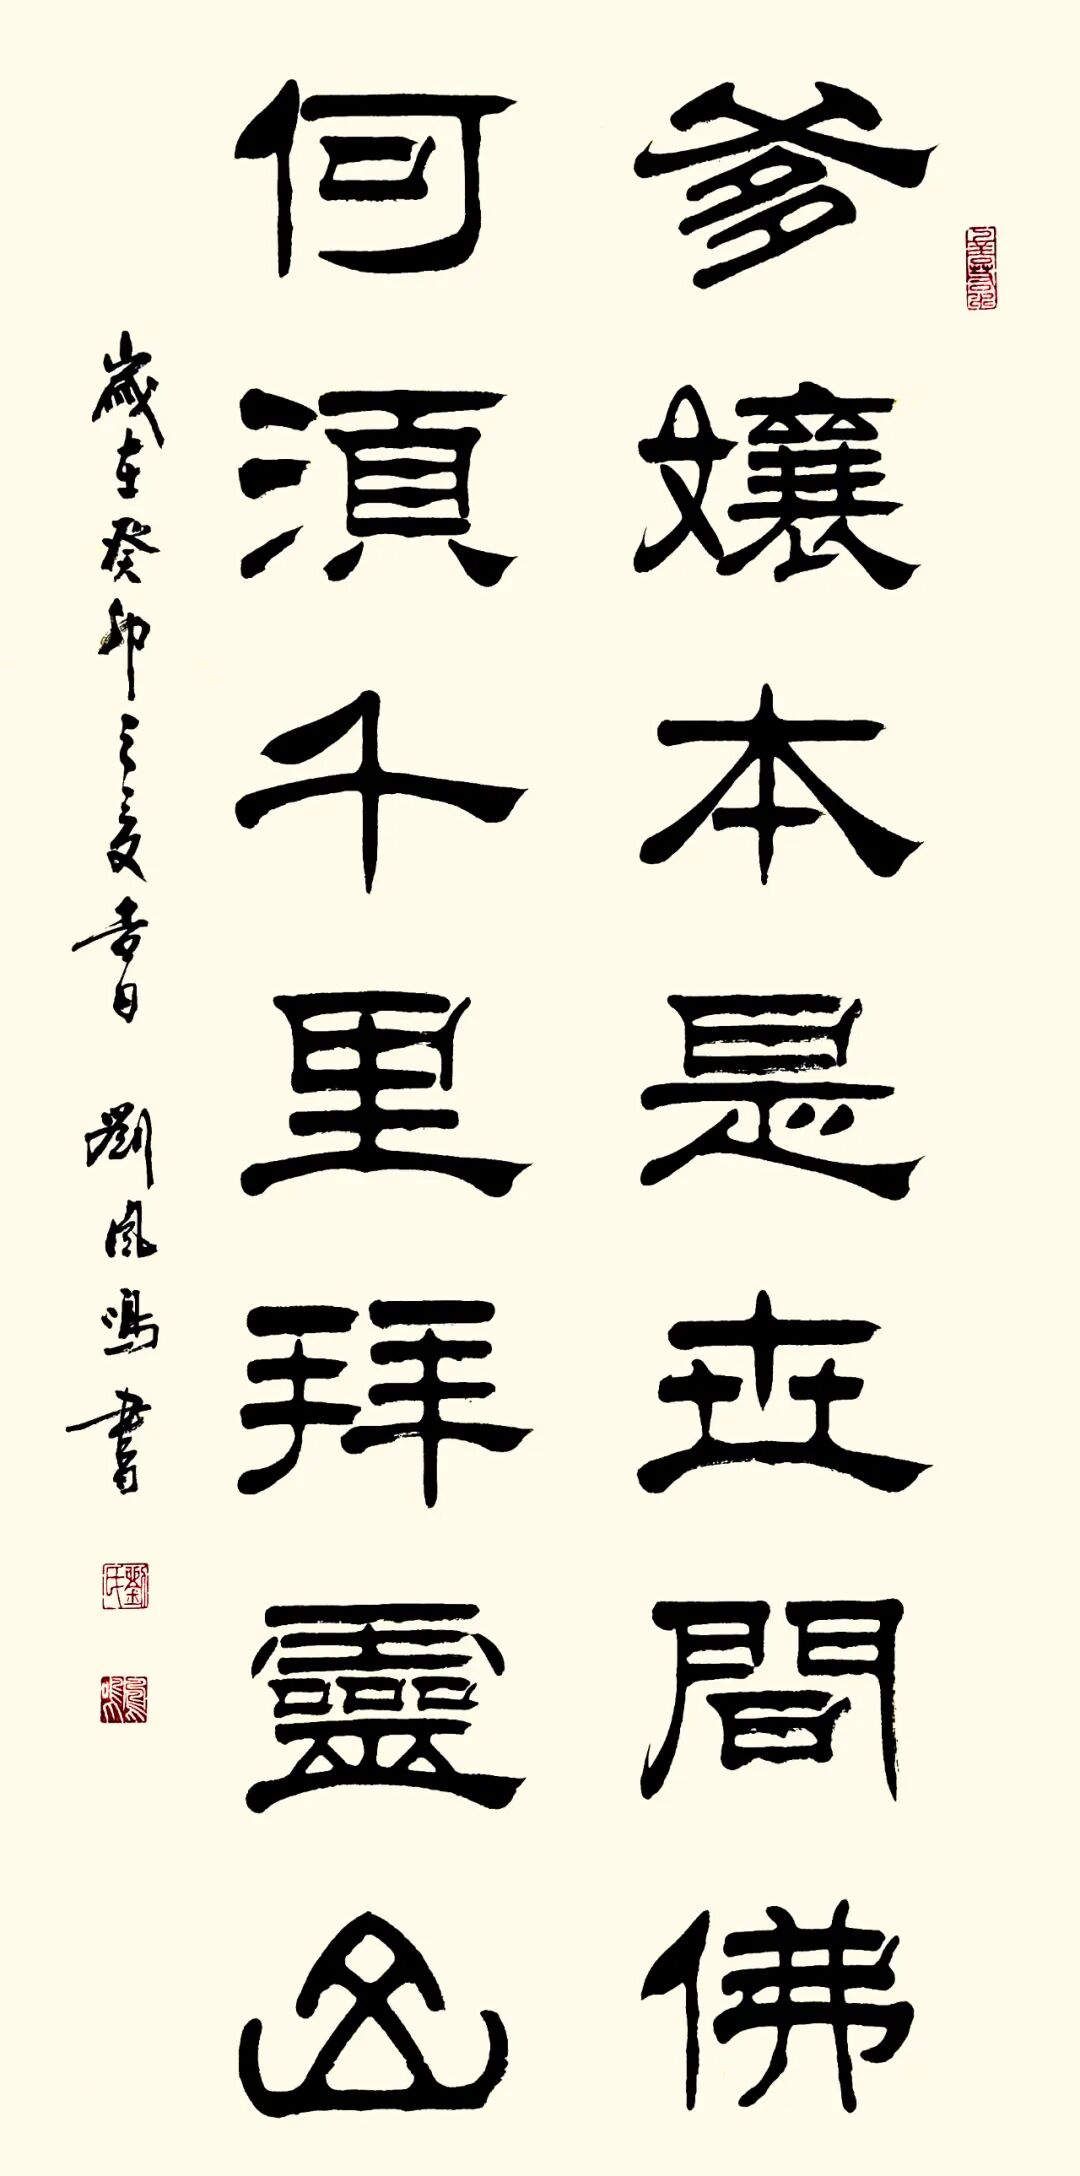 爹孃本是世間佛
何須千里拜靈山
歲在癸卯之夏吉日 劉風鳴書
劉氏